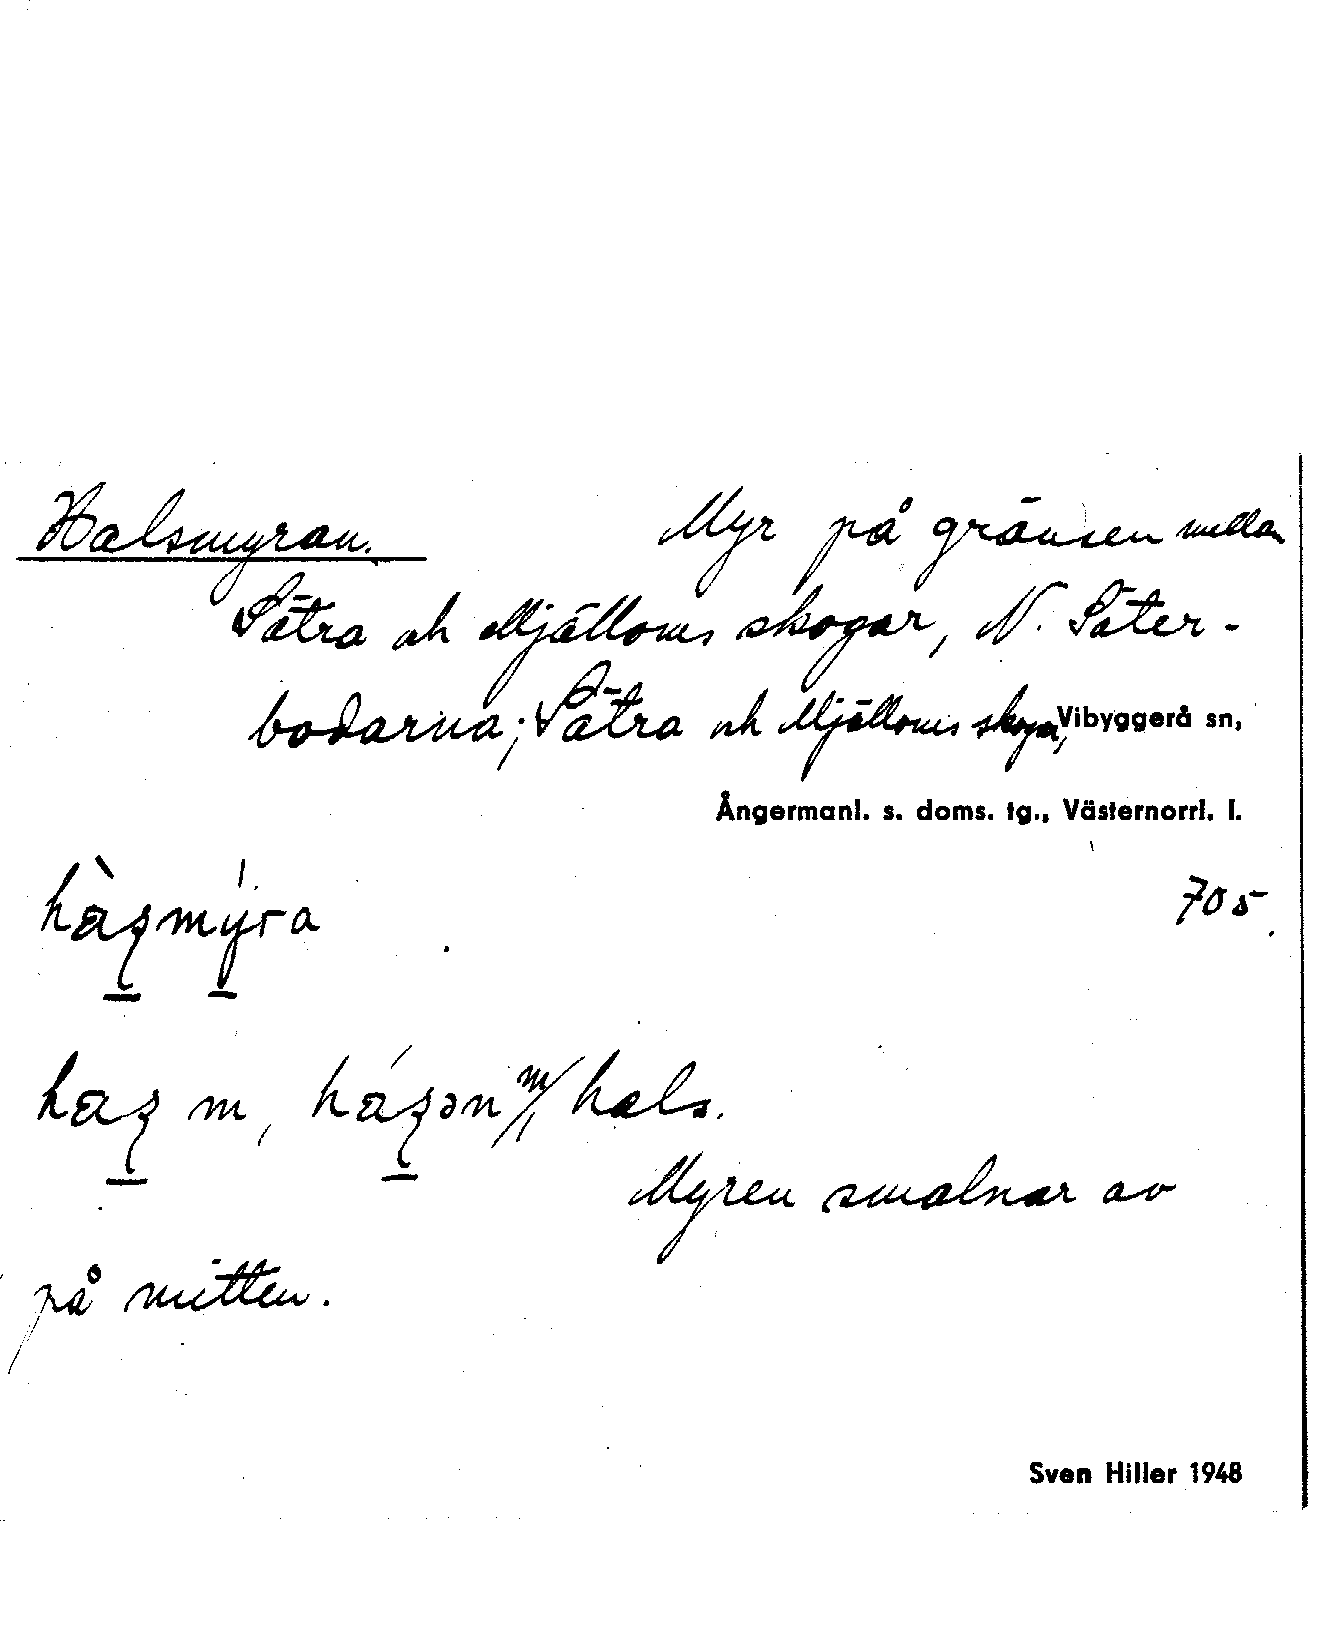 Halsmyran. Myr på gränsen mellan
Sätra och Mjälloms skogar, N. Säter-
bodarna; Sätra och Mjälloms skogar, Vibyggerå sn,
Ångermanl. s. doms. tg., Västernorrl. l.
705
m, hals.
Myren smalnar av
på mitten.
Sven Hiller 1948